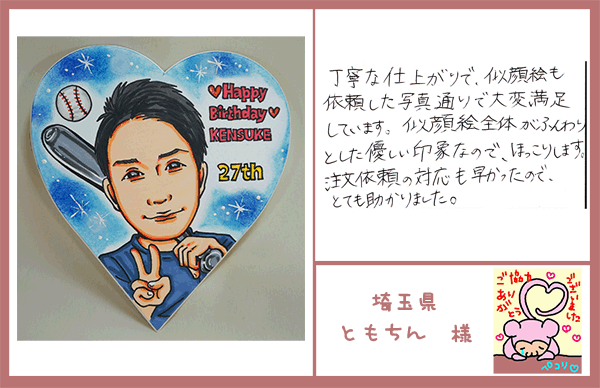 ♥Happy
Birthday♥
KENSUKE
27th
丁寧な仕上がりで、似顔絵も
依頼した写真通りで大変満足
しています。似顔絵全体がふんわり
とした優しい印象なので、ほっこりします。
注文依頼の対応も早かったので、
とても助かりました。
埼玉県
ともちん 様
ご協力
ありがとう
ございました
ペコリ